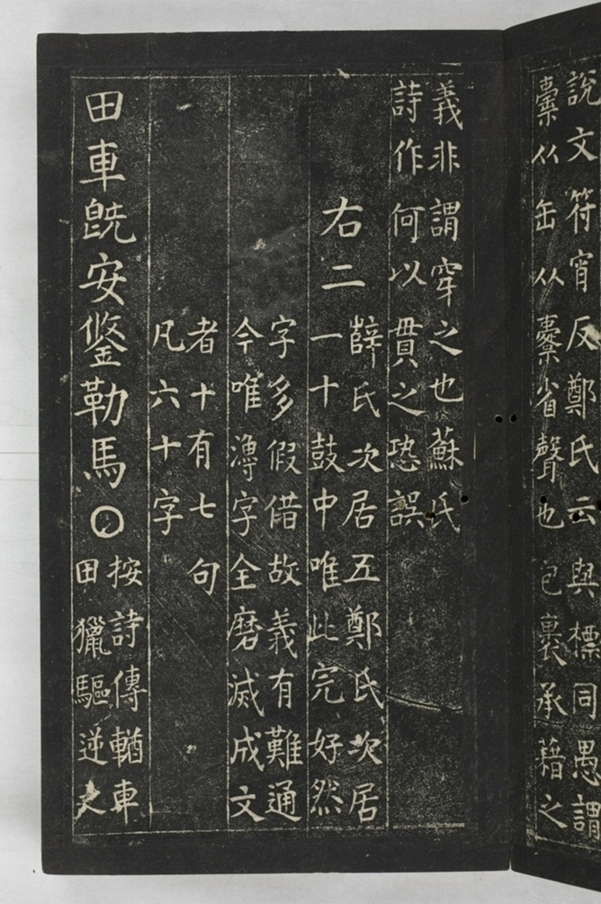 說文符宵反鄭氏云與標同愚謂
橐从缶从橐省聲也包裹承藉之
義非謂穿之也蘇氏
詩作何以貫之恐誤
右二
薛氏次居五鄭氏次居
一十鼓中唯此完好然
字多假借故義有難通
今唯漙字全磨滅成文
者十有七句
凡六十字
田車旣安鋚勒馬〇
按詩傳輶車
田獵驅逆之